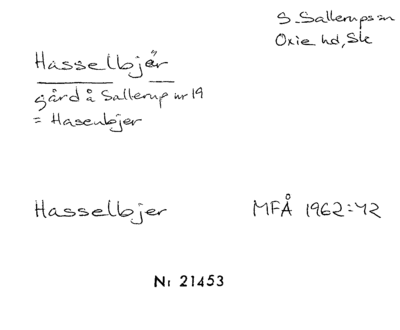 S. Sallerups sn
Oxie hd, Sk
Hasselbjër
gård å Sallerup nr 19
= Hasenbjer
Hasselbjer
MFÅ 1962:42
Nr 21453